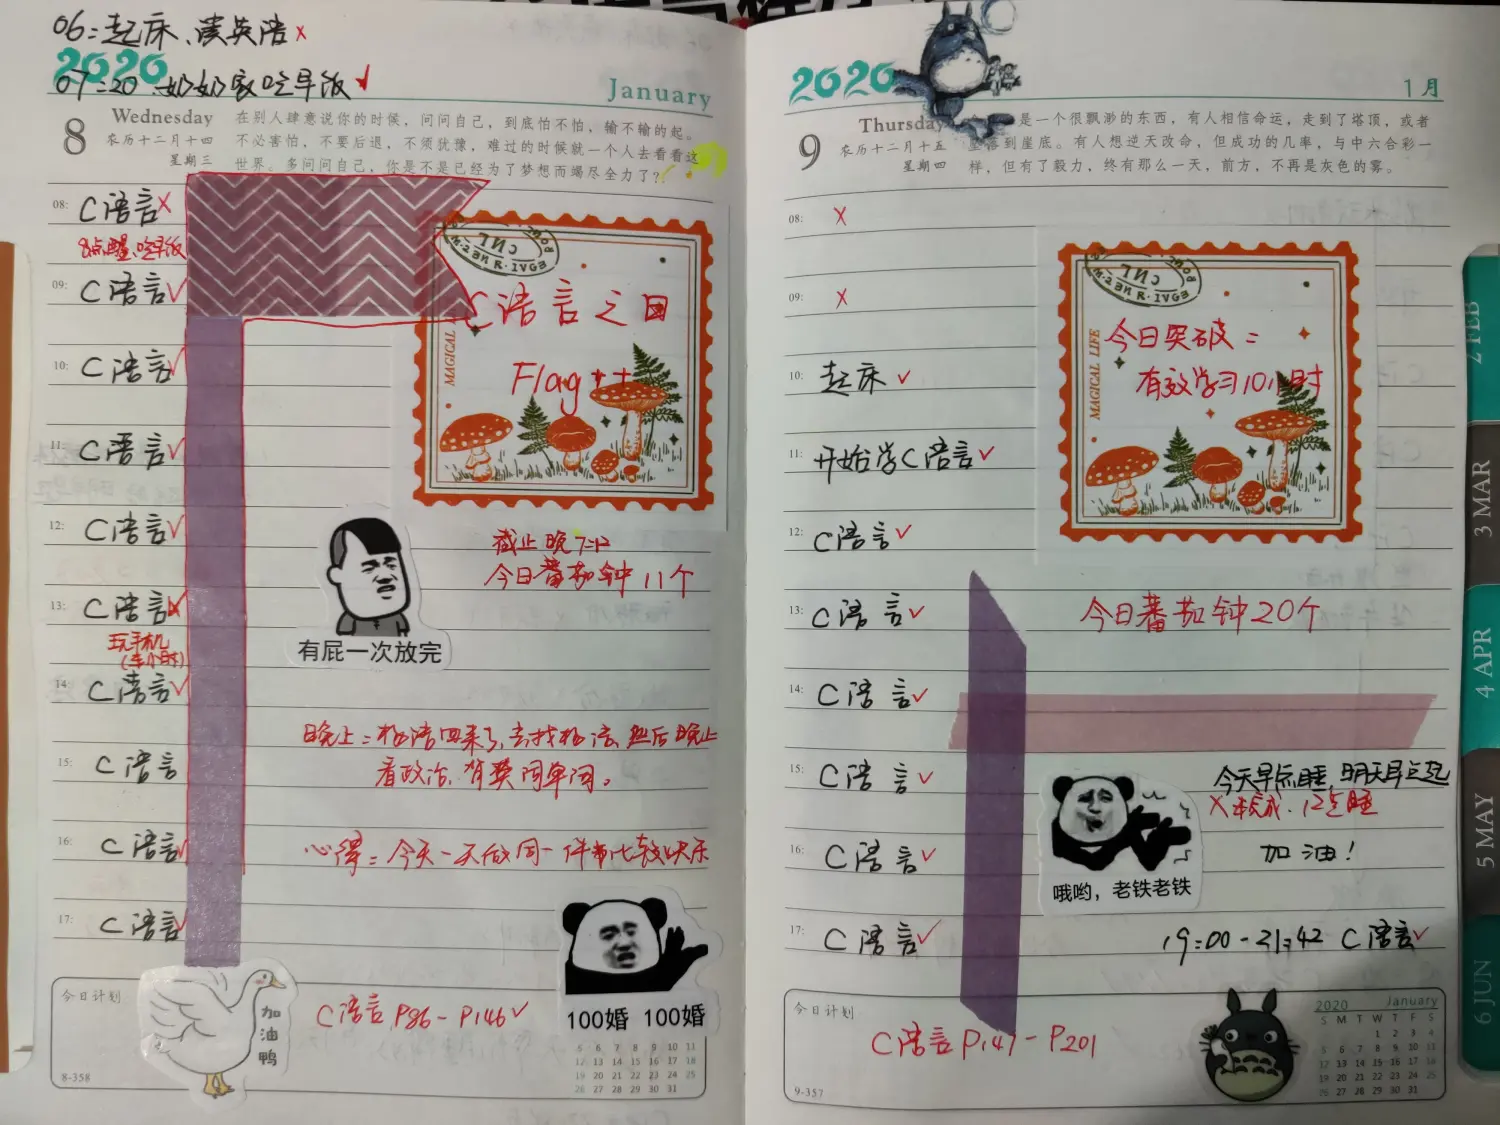 06:起床、读英语×
07:20 奶奶家吃早饭✓
2020
January
8
Wednesday
农历十二月十四
星期三
在别人肆意说你的时候，问问自己，到底怕不怕，输不输的起。
不必害怕，不要后退，不须犹豫，难过的时候就一个人去看看这
世界。多问问自己，你是不是已经为了梦想而竭尽全力了?
08: C语言×
8点醒、吃早饭
09: C语言✓
10: C语言✓
11: C语言✓
12: C语言✓
13: C语言×
玩手机
(半小时)
14: C语言✓
15: C语言
16: C语言✓
17: C语言✓
MAGICAL
C语言之日
Flag++
截止晚7:12
今日番茄钟11个
有屁一次放完
看政治
心得:今天一天做同一件事比较快乐
100婚 100婚
今日计划
加油鸭
C语言 P86-P146✓
5 6 7 8 9 10 11
12 13 14 15 16 17 18
19 20 21 22 23 24 25
26 27 28 29 30 31
8-358
2020
1月
9
Thursday
农历十二月十五
星期四
是一个很飘渺的东西，有人相信命运，走到了塔顶，或者
坠落到崖底。有人想逆天改命，但成功的几率，与中六合彩一
样，但有了毅力，终有那么一天，前方，不再是灰色的雾。
08: ×
09: ×
10: 起床✓
11: 开始学C语言✓
12: C语言✓
13: C语言✓
14: C语言✓
15: C语言✓
16: C语言✓
17: C语言✓
MAGICAL LIFE
今日突破:
有效学习10小时
今日番茄钟20个
今天早点睡,明天早点起
×未完成,12点睡
加油!
哦哟，老铁老铁
19:00-21:42 C语言✓
今日计划
C语言 P147-P201
2020 January
S M T W T F S
1 2 3 4
5 6 7 8 9 10 11
12 13 14 15 16 17 18
19 20 21 22 23 24 25
26 27 28 29 30 31
9-357
2 FEB
3 MAR
4 APR
5 MAY
6 JUN